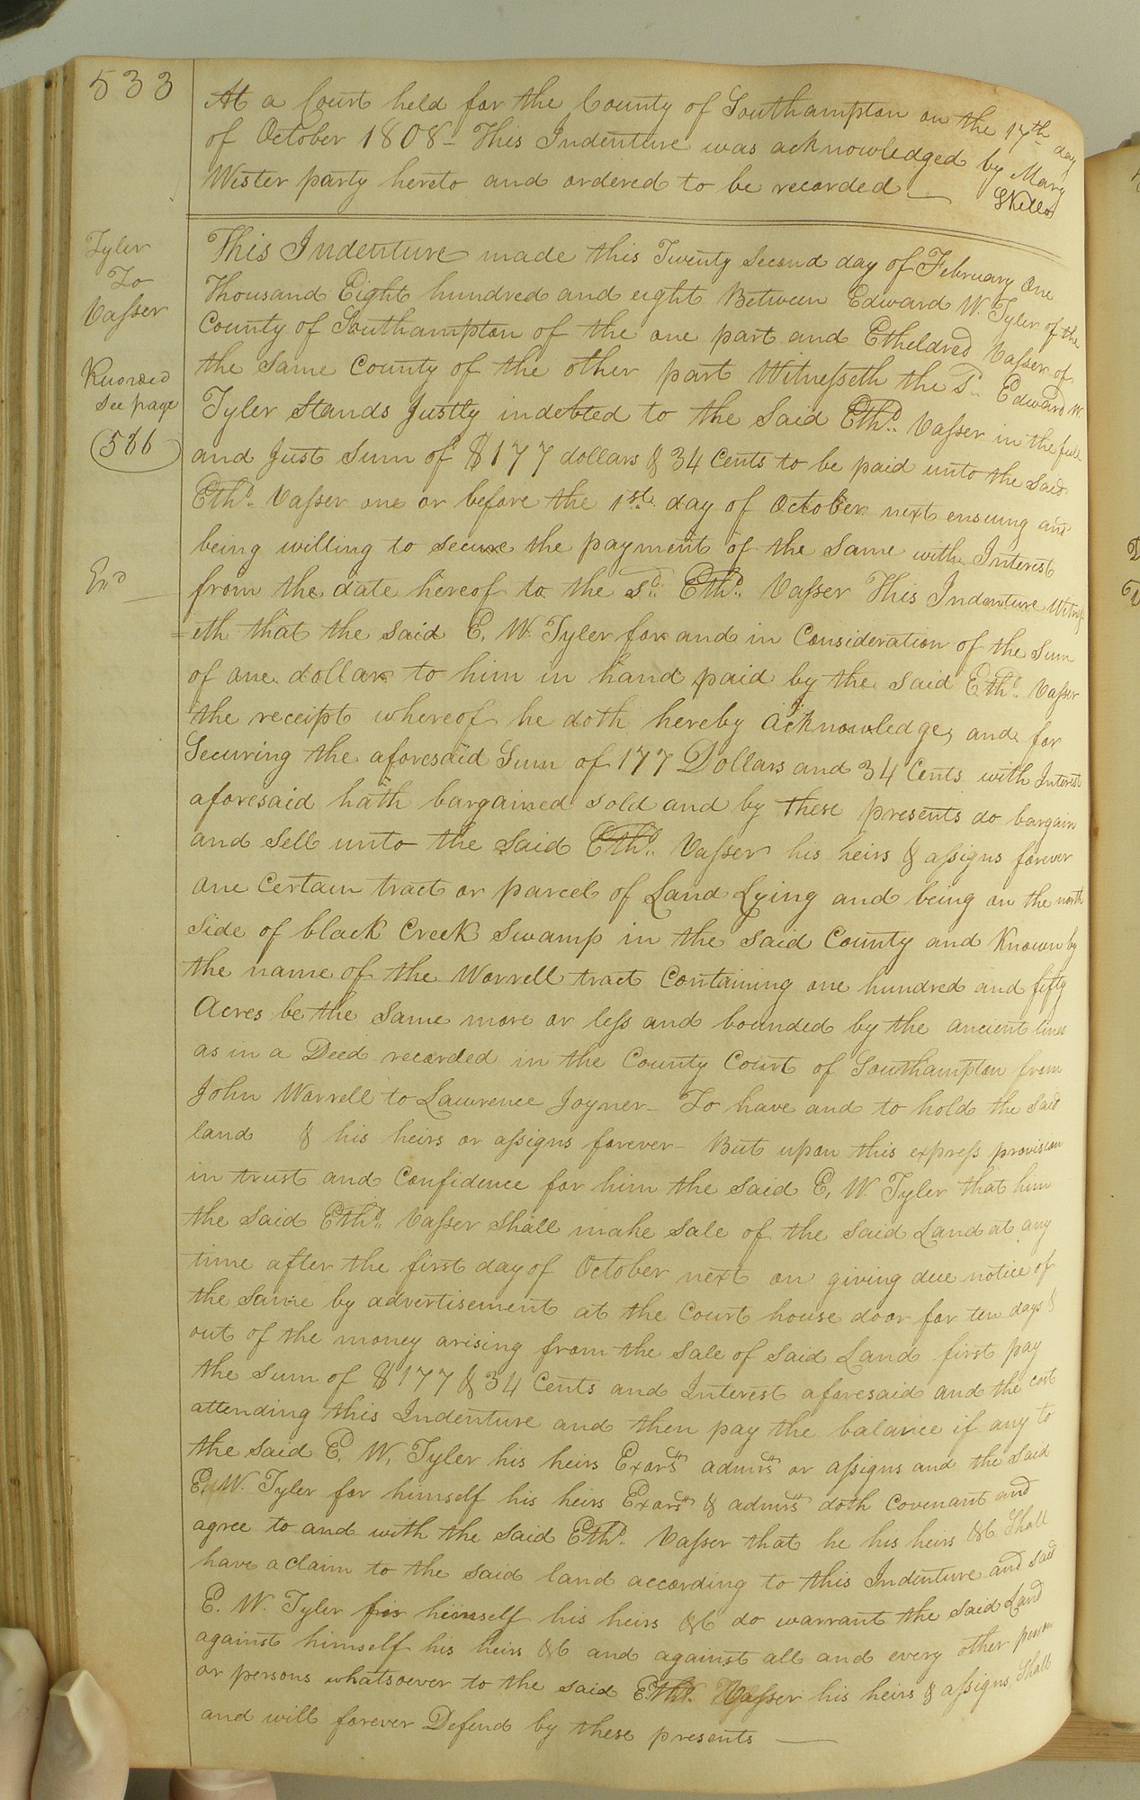 533
At a Court held for the County of Southampton on the 17th day
of October 1808 – This Indenture was acknowledged by Mary
Wester party hereto and ordered to be recorded —
Tyler
To
Vasser
Recorded
See page
586
Exd
This Indenture made this Twenty Second day of February One
Thousand Eight hundred and eight Between Edward W. Tyler of the
County of Southampton of the one part and Etheldred Vasser of
the same County of the other part Witnesseth the Sd. Edward W.
Tyler Stands Justly indebted to the Said Ethd. Vasser in the full
and Just Sum of $177 dollars & 34 Cents to be paid unto the Said
Ethd. Vasser one or before the 1st. day of October next ensuing and
being willing to secure the payment of the Same with Interest
from the date hereof to the Sd. Ethd. Vasser This Indenture Witness
=eth that the said E. W. Tyler for and in Consideration of the Sum
of one dollar to him in hand paid by the said Ethd. Vasser
the receipt whereof he doth hereby acknowledge, and for
Securing the aforesaid Sum of 177 Dollars and 34 Cents with Interest
aforesaid hath bargained sold and by these presents do bargain
and Sell unto the Said Ethd. Vasser his heirs & assigns forever
one Certain tract or parcel of Land Lying and being on the north
Side of black Creek Swamp in the said County and Known by
the name of the Worrell tract Containing one hundred and fifty
Acres be the Same more or less and bounded by the ancient lines
as in a Deed recorded in the County Court of Southampton from
John Worrell to Lawrence Joyner – To have and to hold the said
land & his heirs or assigns forever – But upon this express provision
in trust and Confidence for him the said E. W. Tyler that him
the said Ethd. Vasser Shall make Sale of the Said Land at any
time after the first day of October next on giving due notice of
the Same by advertisement at the Court house door for ten days &
out of the money arising from the Sale of Said Land first pay
the Sum of $177 & 34 Cents and Interest aforesaid and the cost
attending this Indenture and then pay the balance if any to
the said E. W. Tyler his heirs Exors admrs or assigns and the Said
E. W. Tyler for himself his heirs Exors & admrs doth Covenant and
agree to and with the Said Ethd. Vasser that he his heirs &c Shall
have a Claim to the Said land according to this Indenture and Said
E. W. Tyler for himself his heirs &c do warrant the Said Land
against himself his heirs &c and against all and every other person
or persons whatsoever to the said Ethd. Vasser his heirs & assigns Shall
and will forever Defend by these presents —